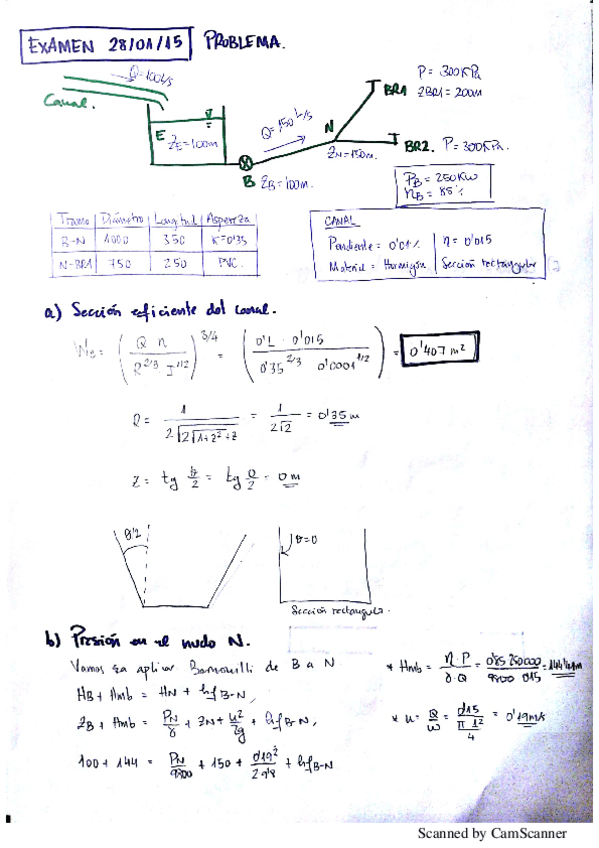 EXAMEN 28/01/15 PROBLEMA.
Q=100L/s
Canal.
E
ZE=100m
B ZB=100m.
Q=150 L/s
N
ZN=150m.
BR1
P= 300KPa
ZBR1= 200m
BR2. P=300KPa.
PB = 250KW
ηB = 85%
Tramo Diámetro Longitud Aspereza
B-N 1000 350 K=0'35
N-BR1 750 250 PVC.
CANAL
Pendiente = 0'01% η = 0'015
Material = Hormigón Sección rectangular
a) Sección eficiente del canal.
W0 = (Q n / R^2/3 J^1/2)^3/4 = (0'1 · 0'015 / 0'35^2/3 0'0001^1/2) = 0'407 m²
R = 1 / 2√2√1+z²-z = 1 / 2√2 = 0'35 m
Z = tg θ/2 = tg 0/2 = 0 m
θ/2
θ=0
Sección rectangular.
b) Presión en el nudo N.
Vamos a aplicar Bernouilli de B a N
HB + Hmb = HN + hf B-N,
ZB + Hmb = PN/γ + ZN + u²/2g + hf B-N,
100 + 144 = PN/9800 + 150 + 0'19²/2·9'8 + hf B-N
* Hmb = η·P / γ·Q = 0'85 250000 / 9800 0'15 = 144'
* u = Q/ω = 0'15 / π 1²/4 = 0'19 m/s
Scanned by CamScanner